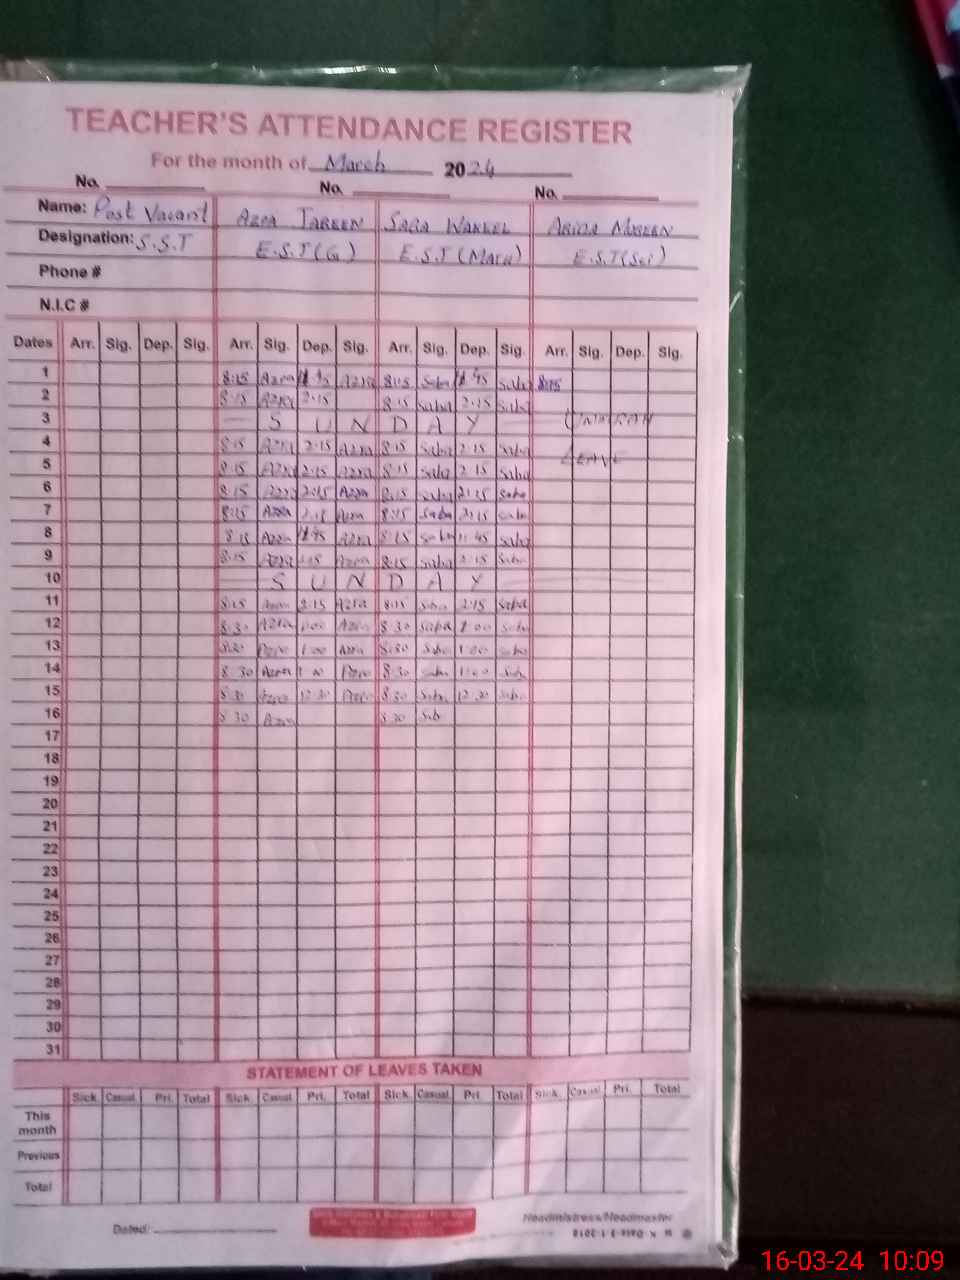 TEACHER'S ATTENDANCE REGISTER
For the month of March 2024
No. No. No.
Name: Post Vacant AZRA TAREEN SABA WAKEEL
Designation: S.S.T E.S.T (G) E.S.T (Math) E.S.T (Sci)
Phone #
N.I.C #
Dates Arr. Sig. Dep. Sig. Arr. Sig. Dep. Sig. Arr. Sig. Dep. Sig. Arr. Sig. Dep. Sig.
1 8:15 Azra Azra 8:15 Saba Saba 8:15
2 8:15 Azra 2:15 8:15 Saba 2:15 Saba
3 S U N D A Y
4 8:15 Azra 2:15 Azra 8:15 Saba 2:15 Saba
LEAVE
5 8:15 Azra 2:15 Azra 8:15 Saba 2:15 Saba
6 8:15 Azra 2:15 Azra 8:15 Saba 2:15 Saba
7 8:15 Azra 2:15 Azra 8:15 Saba 2:15 Saba
8 8:15 Azra Azra 8:15 Saba 11:45 Saba
9 8:15 Azra Azra 8:15 Saba 2:15 Saba
10 S U N D A Y
11 8:15 Azra 2:15 Azra 8:15 Saba 2:15 Saba
12 8:30 Azra 1:00 Azra 8:30 Saba 1:00 Saba
13 8:30 Azra 1:00 Azra 8:30 Saba 1:00 Saba
14 8:30 Azra 1:00 Azra 8:30 Saba 1:00 Saba
15 8:30 Azra 12:30 Azra 8:30 Saba 12:30 Saba
16 8:30 Azra 8:30 Sab
17
18
19
20
21
22
23
24
25
26
27
28
29
30
31
STATEMENT OF LEAVES TAKEN
Sick. Casual. Pri. Total Sick. Casual. Pri. Total Sick. Casual. Pri. Total Sick. Casual. Pri. Total
This month
Previous
Total
Dated:
Headmistress/Headmaster
16-03-24 10:09